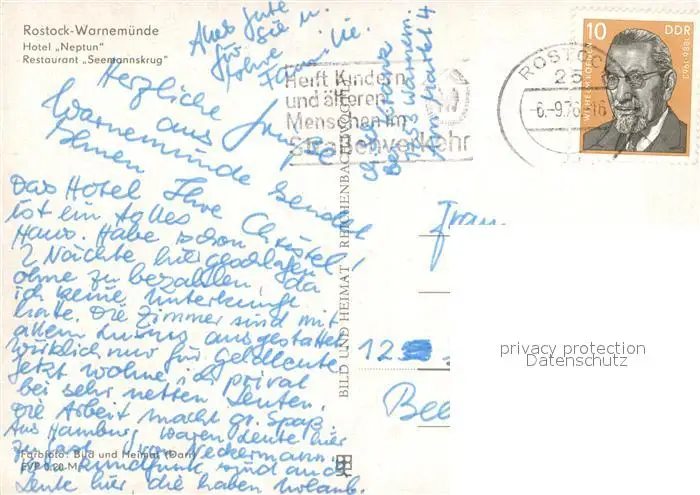 Rostock-Warnemünde
Hotel „Neptun"
Restaurant „Seemannskrug"
Alles Gute
für Sie u.
Ihre
Familie.
Herzliche Grüße
aus
Warnemünde sendet
Ihnen
Ihre Christel,
Das Hotel
ist ein tolles
Haus. Habe schon
2 Nächte hier geschlafen
ohne zu bezahlen, da
ich keine Unterkunft
hatte. Die Zimmer sind mit
allem Luxus ausgestattet
wirklich nur für Geldleute.
Jetzt wohne ich privat
bei sehr netten Leuten.
Die Arbeit macht gr. Spaß
Aus Hamburg waren Leute hier
zu Gast von Neckermann
Rundfunk sind auch
Leute hier, die haben Urlaub.
Farbfoto: Bild und Heimat (Darr)
EVP 0,20 M
BILD UND HEIMAT REICHENBACH (VOGTL)
Helft Kindern
und älteren
Menschen im
Straßenverkehr
ROSTOCK
25
-6.-9.76-16
10
DDR
Warnem.
Markt 4
Frau
12
privacy protection
Datenschutz